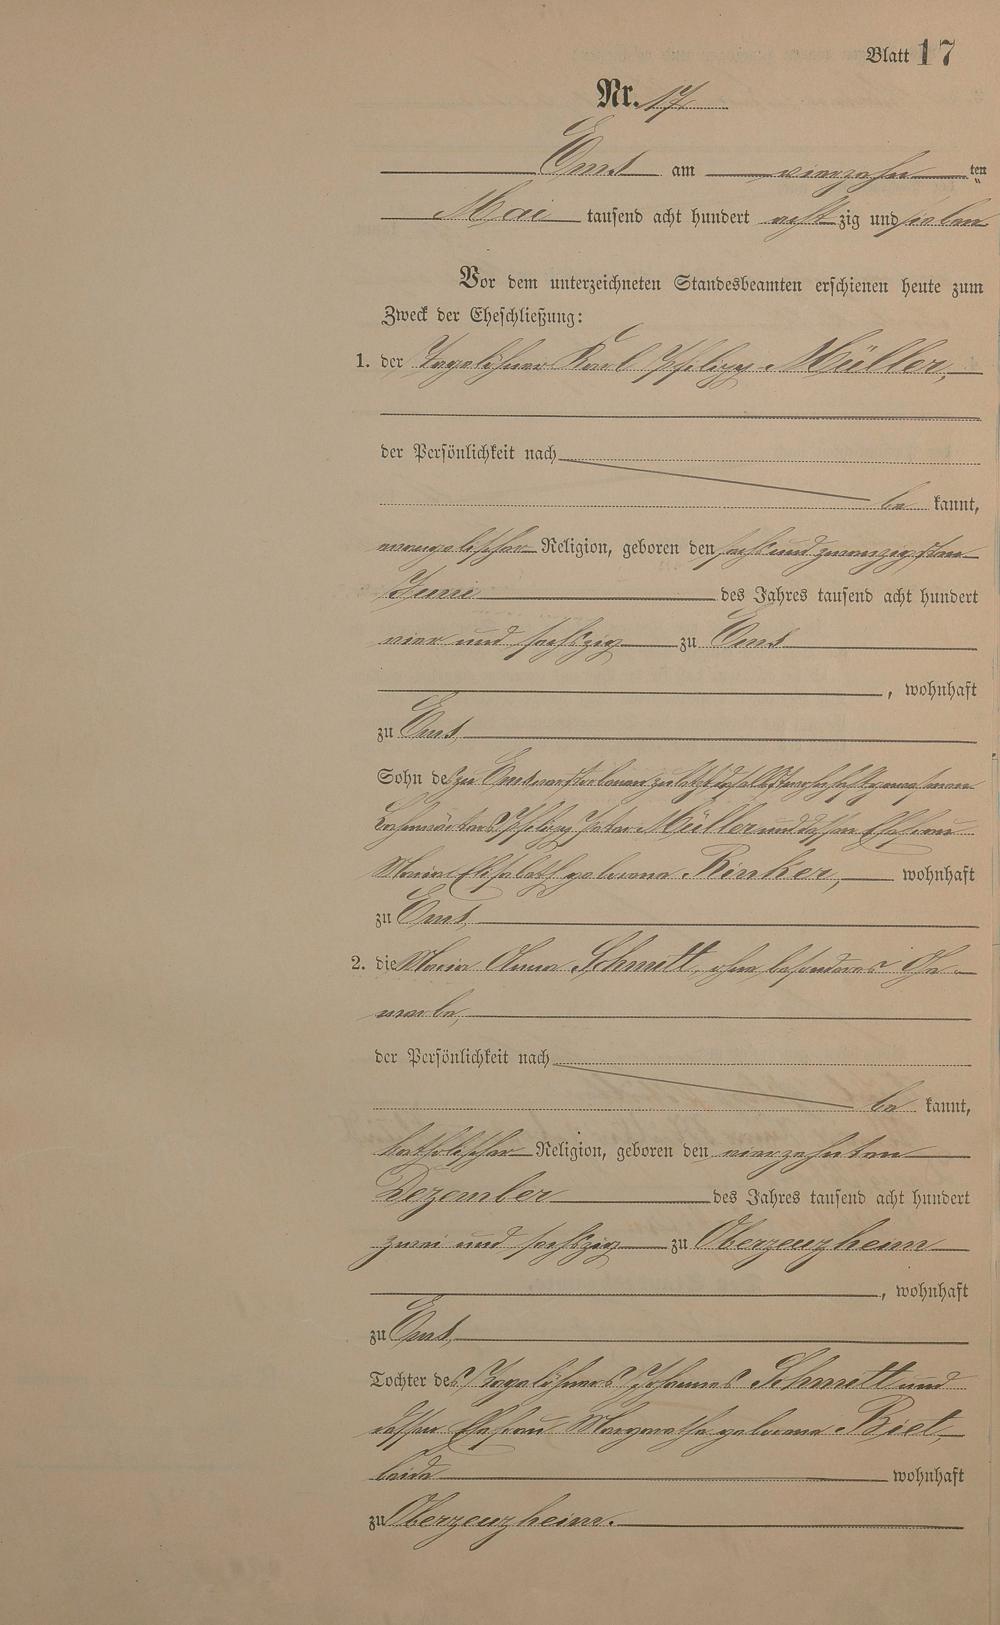 Blatt 17
Nr. 17
Ems am vierzehn ten
Mai tausend acht hundert acht zig und sieben
Vor dem unterzeichneten Standesbeamten erschienen heute zum
Zweck der Eheschließung:
1. der Tagelöhner Karl Philipp Müller,
der Persönlichkeit nach
be kannt,
evangelischer Religion, geboren den sechs und zwanzigsten
Juni des Jahres tausend acht hundert
vier und sechszig zu Ems
, wohnhaft
zu Ems,
Sohn des zu Ems verstorbenen zuletzt daselbst wohnhaft gewesenen
Philipp Peter Müller und dessen Ehefrau
Maria Elisabeth geborene Rinker, wohnhaft
zu Ems,
2. die Maria Anna Schmitt, ohne besonderes Ge-
werbe,
der Persönlichkeit nach
be kannt,
katholischer Religion, geboren den vierzehnten
Dezember des Jahres tausend acht hundert
zwei und sechszig zu Oberzeuzheim
, wohnhaft
zu Ems,
Tochter des Tagelöhners Johannes Schmitt und
dessen Ehefrau Margarethe geborene Biet,
beide wohnhaft
zu Oberzeuzheim.